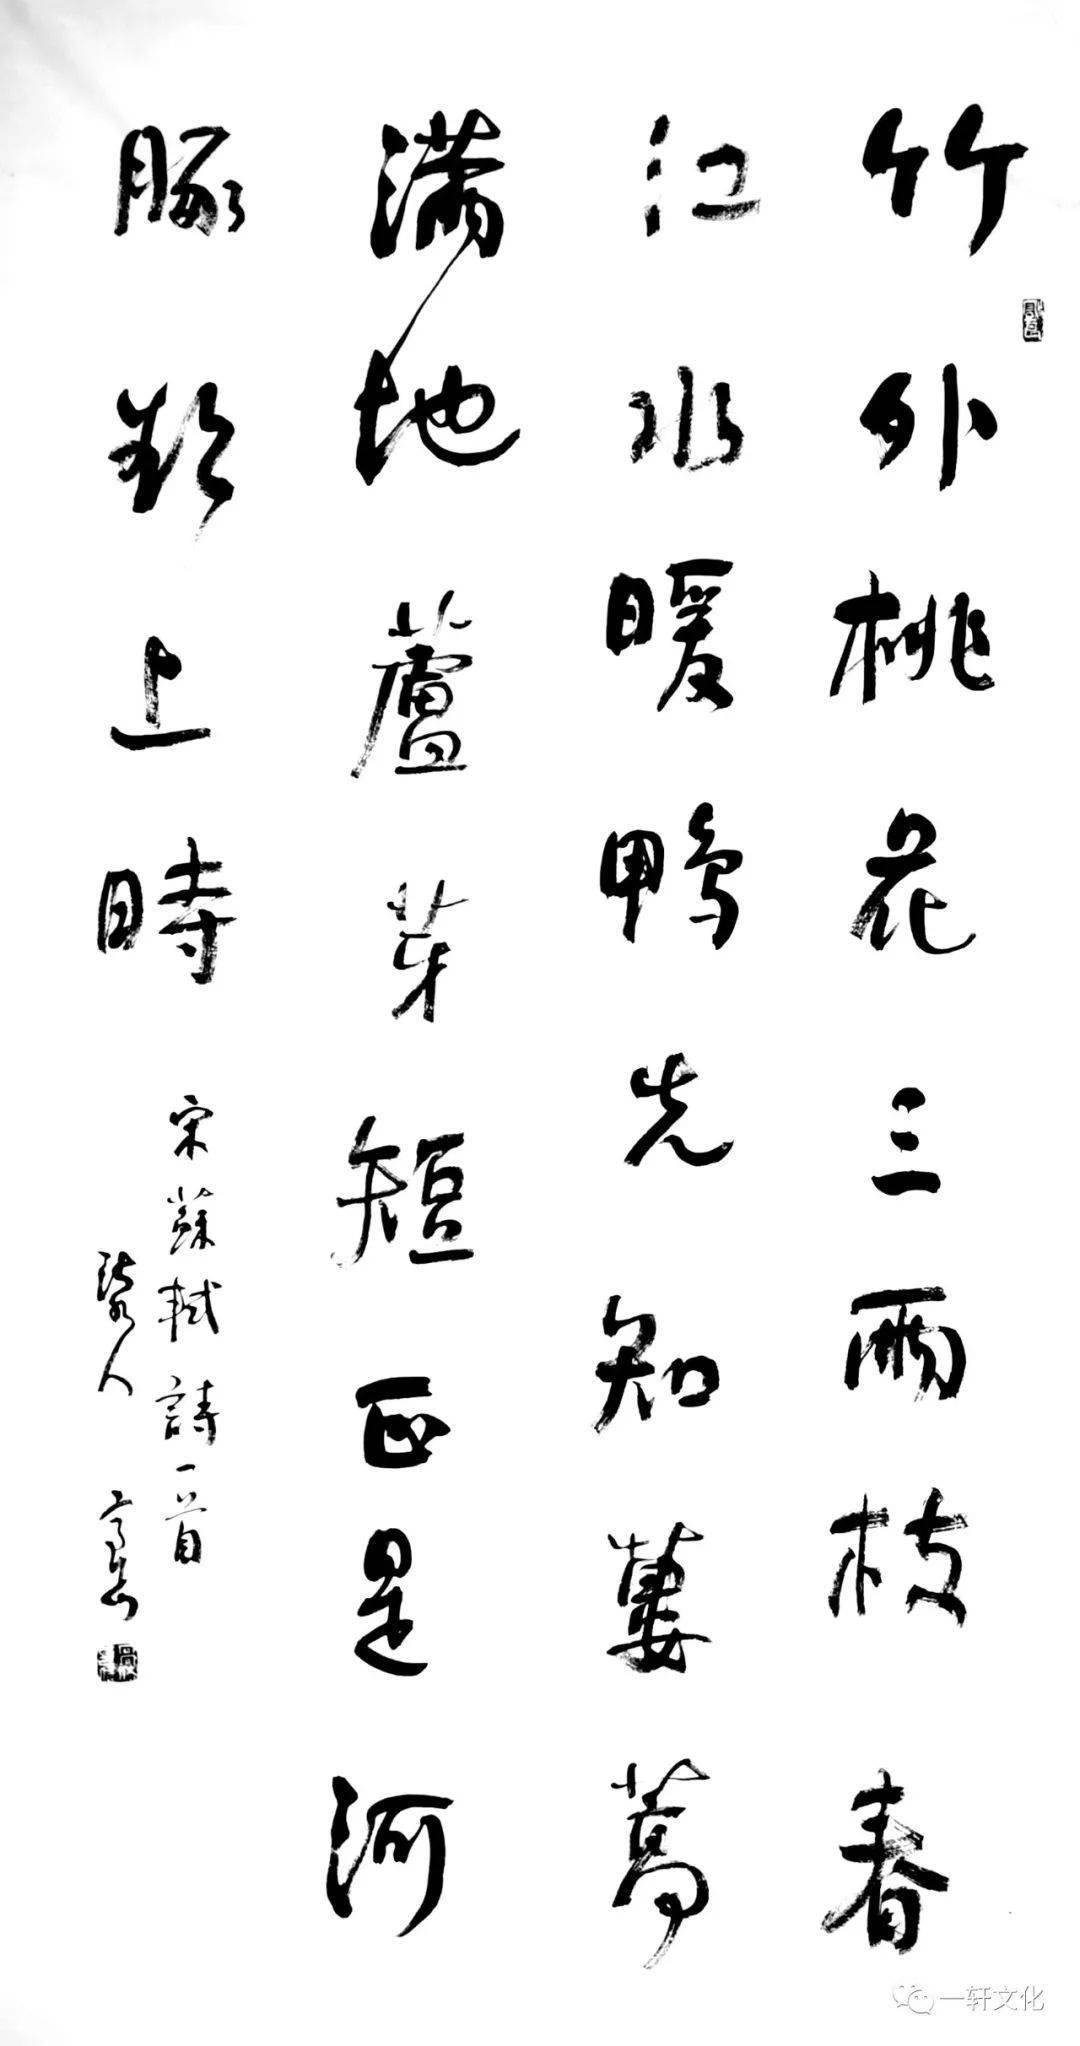 竹外桃花三兩枝春
江水暖鴨先知蔞蒿
滿地蘆芽短正是河
豚欲上時
宋蘇軾詩一首
人
一轩文化